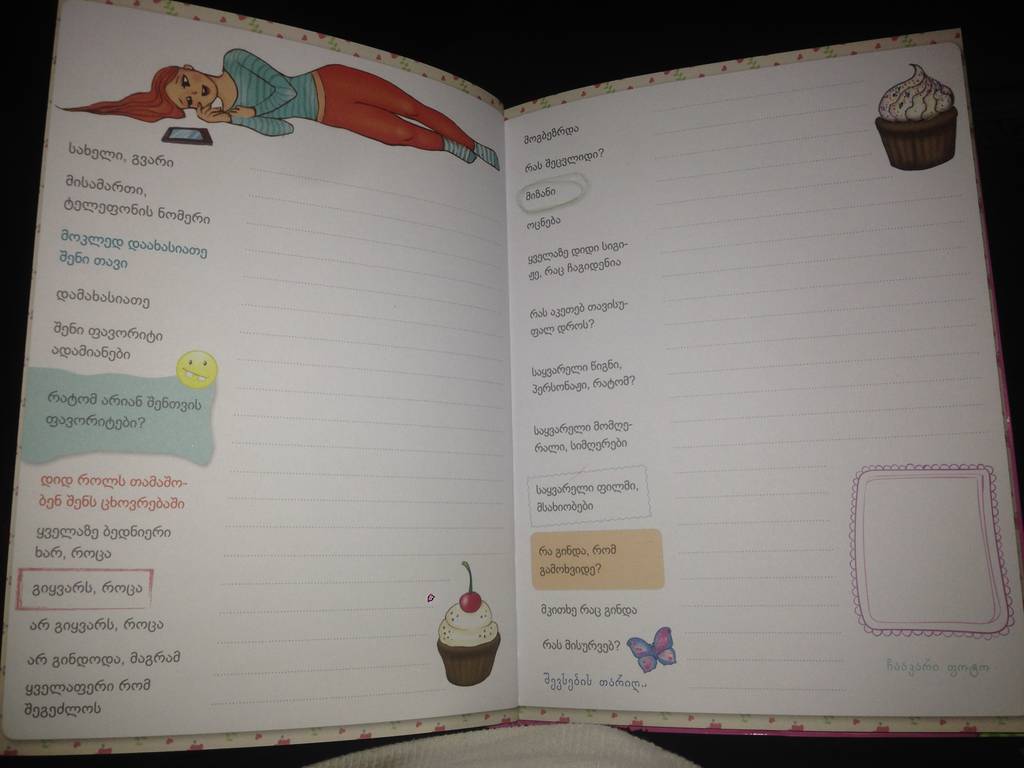 სახელი, გვარი
მისამართი,
ტელეფონის ნომერი
მოკლედ დაახასიათე
შენი თავი
დამახასიათე
შენი ფავორიტი
ადამიანები
რატომ არიან შენთვის
ფავორიტები?
დიდ როლს თამაშო-
ბენ შენს ცხოვრებაში
ყველაზე ბედნიერი
ხარ, როცა
გიყვარს, როცა
არ გიყვარს, როცა
არ გინდოდა, მაგრამ
ყველაფერი რომ
შეგეძლოს
მოგბეზრდა
რას შეცვლიდი?
მიზანი
ოცნება
ყველაზე დიდი სიგი-
ჟე, რაც ჩაგიდენია
რას აკეთებ თავისუ-
ფალ დროს?
საყვარელი წიგნი,
პერსონაჟი, რატომ?
საყვარელი მომღე-
რალი, სიმღერები
საყვარელი ფილმი,
მსახიობები
რა გინდა, რომ
გამოხვიდე?
მკითხე რაც გინდა
რას მისურვებ?
შევსების თარიღ..
ჩააკარი ფოტო